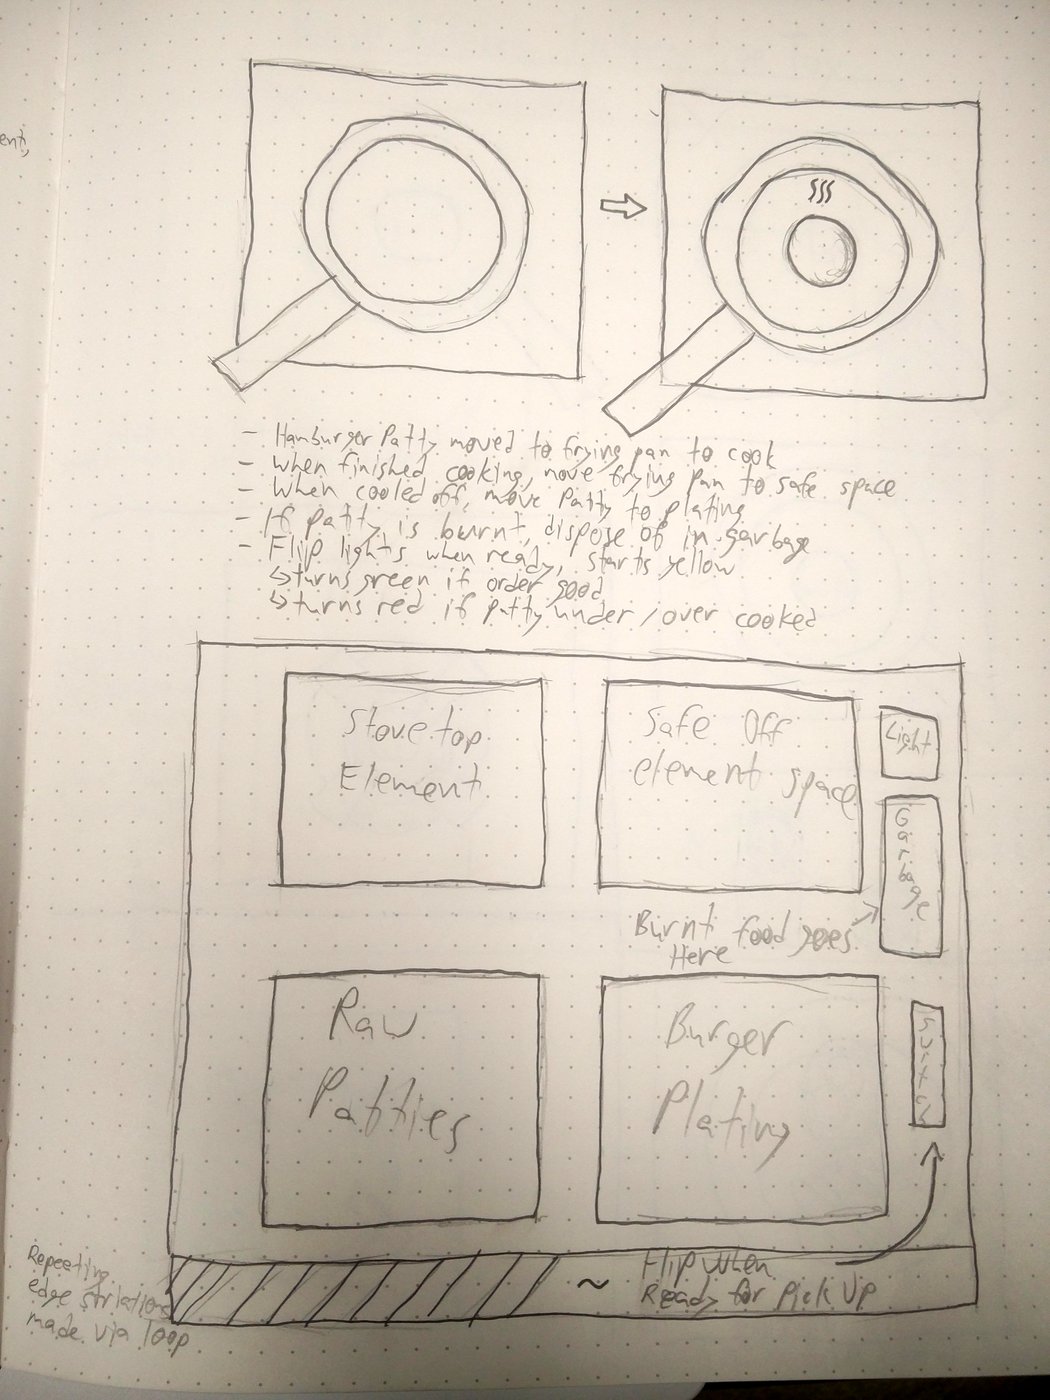 ent,
- Hamburger Patty moved to frying pan to cook
- When finished cooking, move frying pan to safe space
- When cooled off, move Patty to plating
- If patty is burnt, dispose of in garbage
- Flip lights when ready, starts yellow
↳ turns green if order good
↳ turns red if patty under/over cooked
Stove top
Element
Safe Off
element space
Light
Garbage
Burnt food goes
Here
Raw
Patties
Burger
Plating
Flip when
Ready for Pick Up
~
Repeeting
edge striations
made via loop